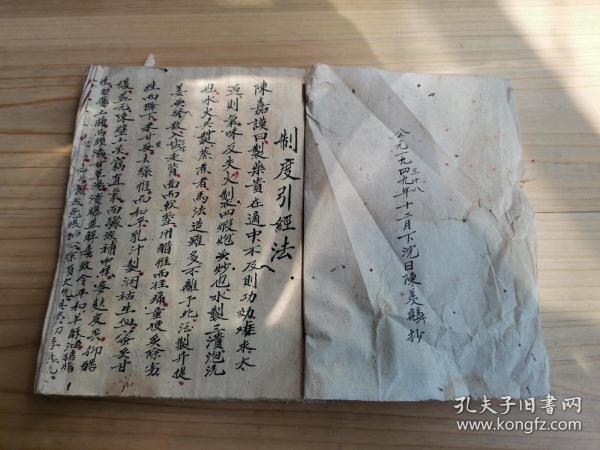 公元一九四九年十二月下浣日陳美
三十八
抄
制度引經法
陳嘉謨曰製藥貴在適中不及則功効難求太
過則氣味反失火製四煅炮炙炒也水製三漬泡洗
也水火共製蒸煮者焉法造雖多不離于此酒製升提
姜炙發散入塩走腎而軟堅用醋注而住痛童便炙除劣
性而降下米甘炙去燥性而和中乳汁製潤枯生血蜜炙甘
緩益元陳壁土炙竊真氣而驟疾補中焦麥麩皮炙抑酷
性勿傷上膈烏豆湯甘草湯漬曝並解毒致令平和羊酥油猪脂
孔夫子旧书网
www.kongfz.com